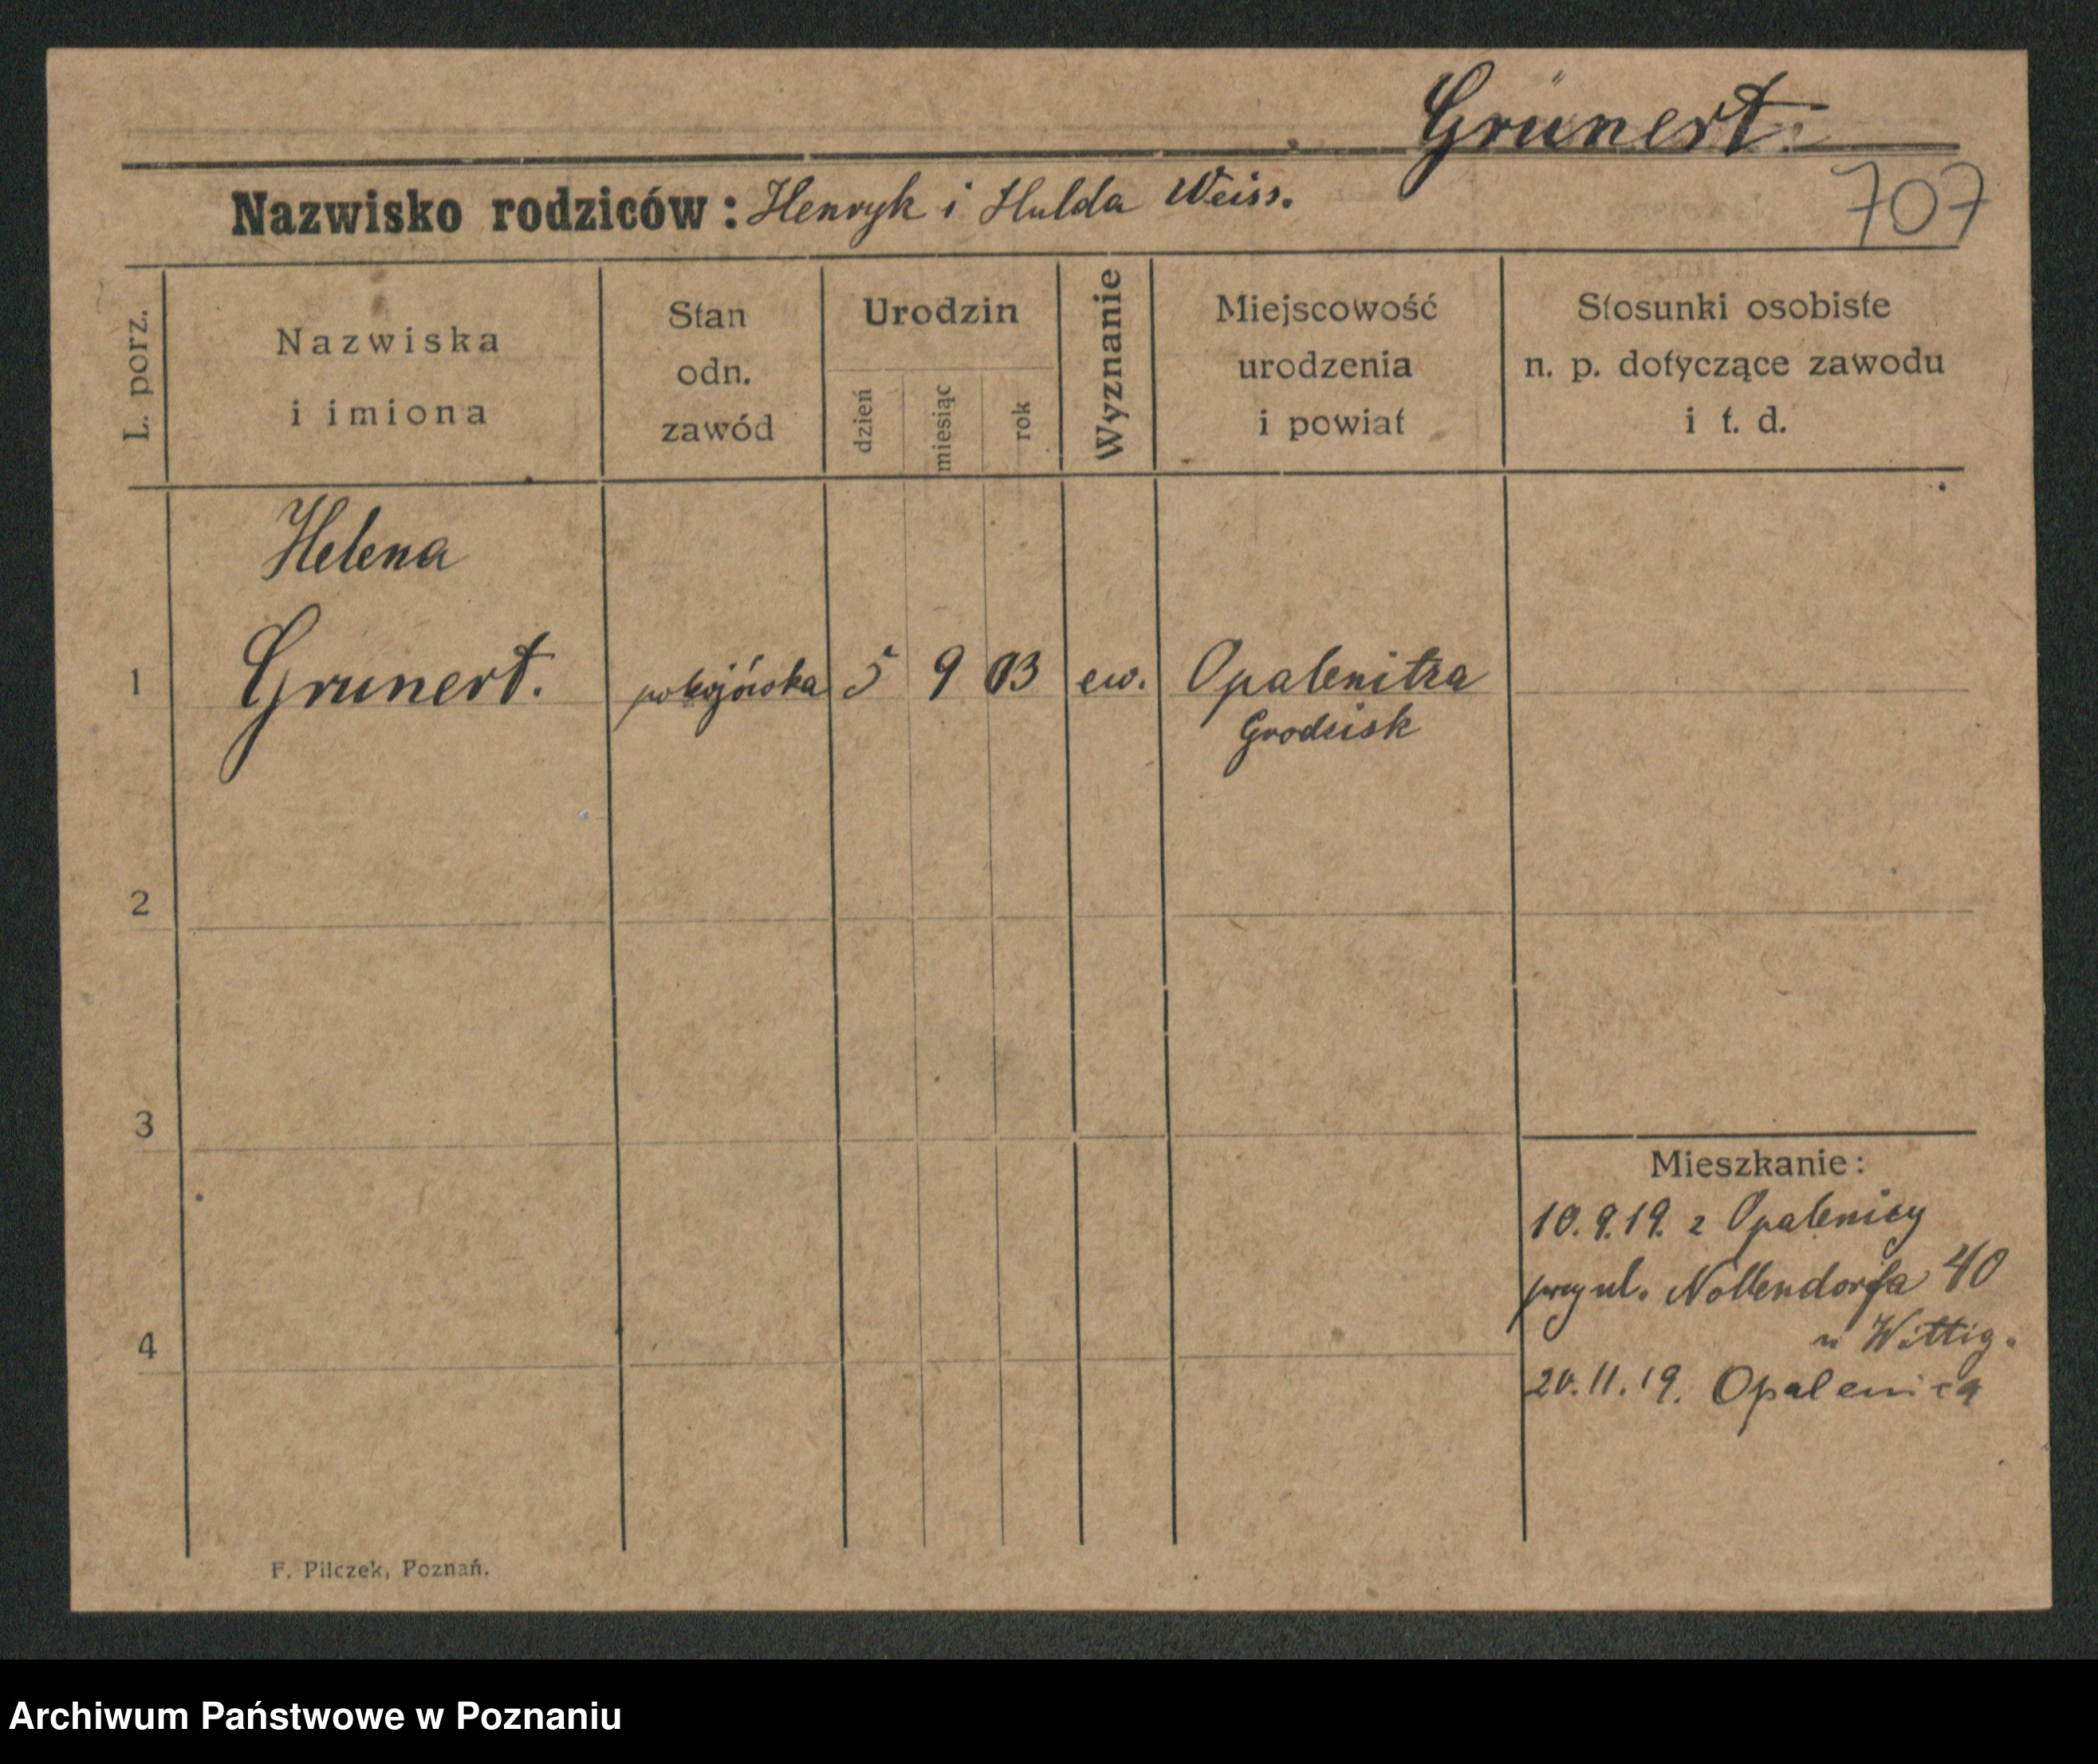 Grünert.
707
Nazwisko rodziców: Henryk i Hulda Weiss.
L. porz.
Nazwiska
i imiona
Stan
odn.
zawód
Urodzin
dzień
miesiąc
rok
Wyznanie
Miejscowość
urodzenia
i powiat
Stosunki osobiste
n. p. dotyczące zawodu
i t. d.
Helena
1 Grunert. pokojówka 5 9 03 ew. Opalenitza
Grodzisk
2
3
4
Mieszkanie:
10.9.19. z Opalenicy
przy ul. Nollendorfa 40
u Wittig.
20.11.19. Opalenica
F. Pilczek, Poznań.
Archiwum Państwowe w Poznaniu